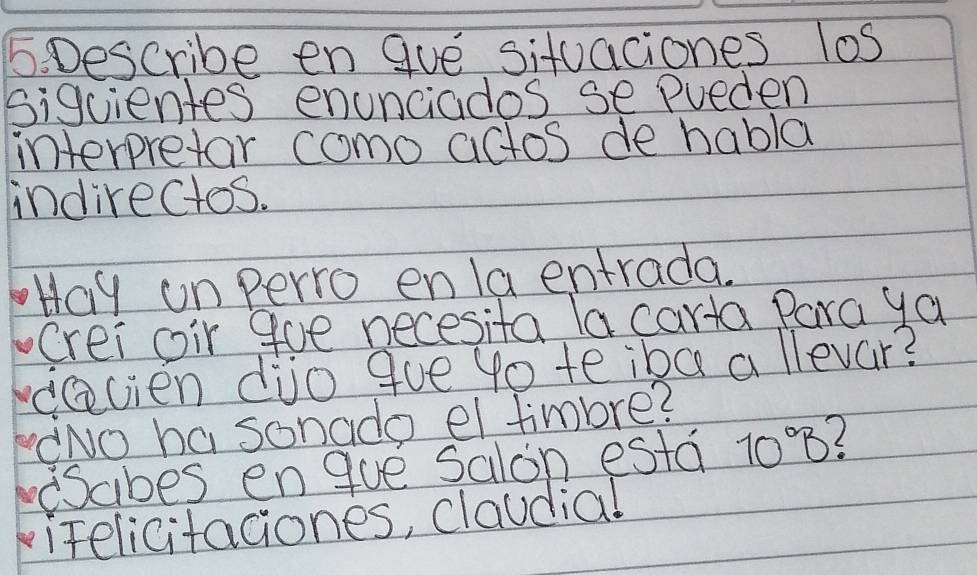 5. Describe en qué situaciones los
siguientes enunciados se pueden
interpretar como actos de habla
indirectos.
Hay un perro en la entrada.
Crei oir que necesita la carta para ya
¿Quién dijo que yo te iba a llevar?
¿No ha sonado el timbre?
¿Sabes en qué salón está 10°B?
¡Felicitaciones, claudia!